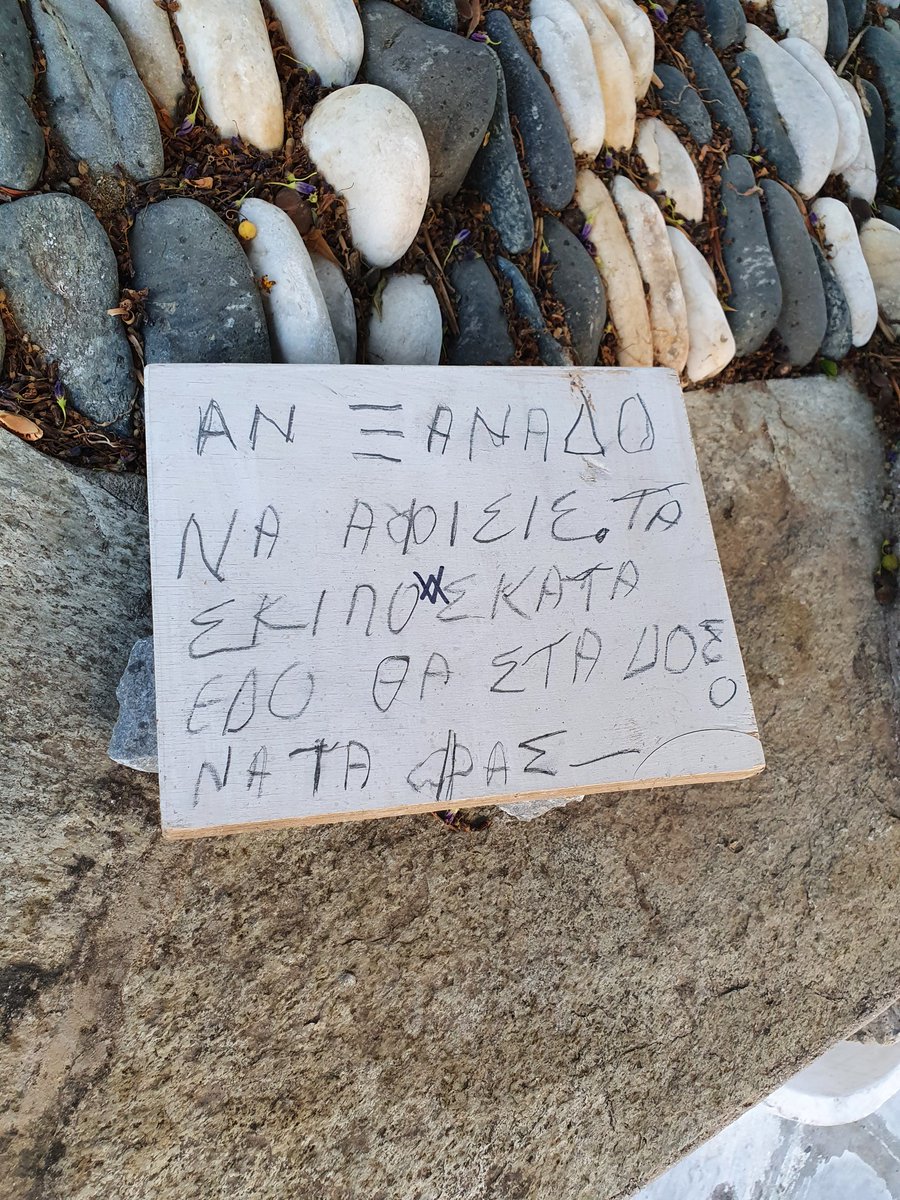 ΑΝ ΞΑΝΑΔΟ
ΝΑ ΑΦΙΣΙΣ. ΤΑ
ΣΚΙΠΟΣΚΑΤΑ
ΕΔΟ ΘΑ ΣΤΑ ΔΟΣΟ
ΝΑ ΤΑ ΦΑΣ —